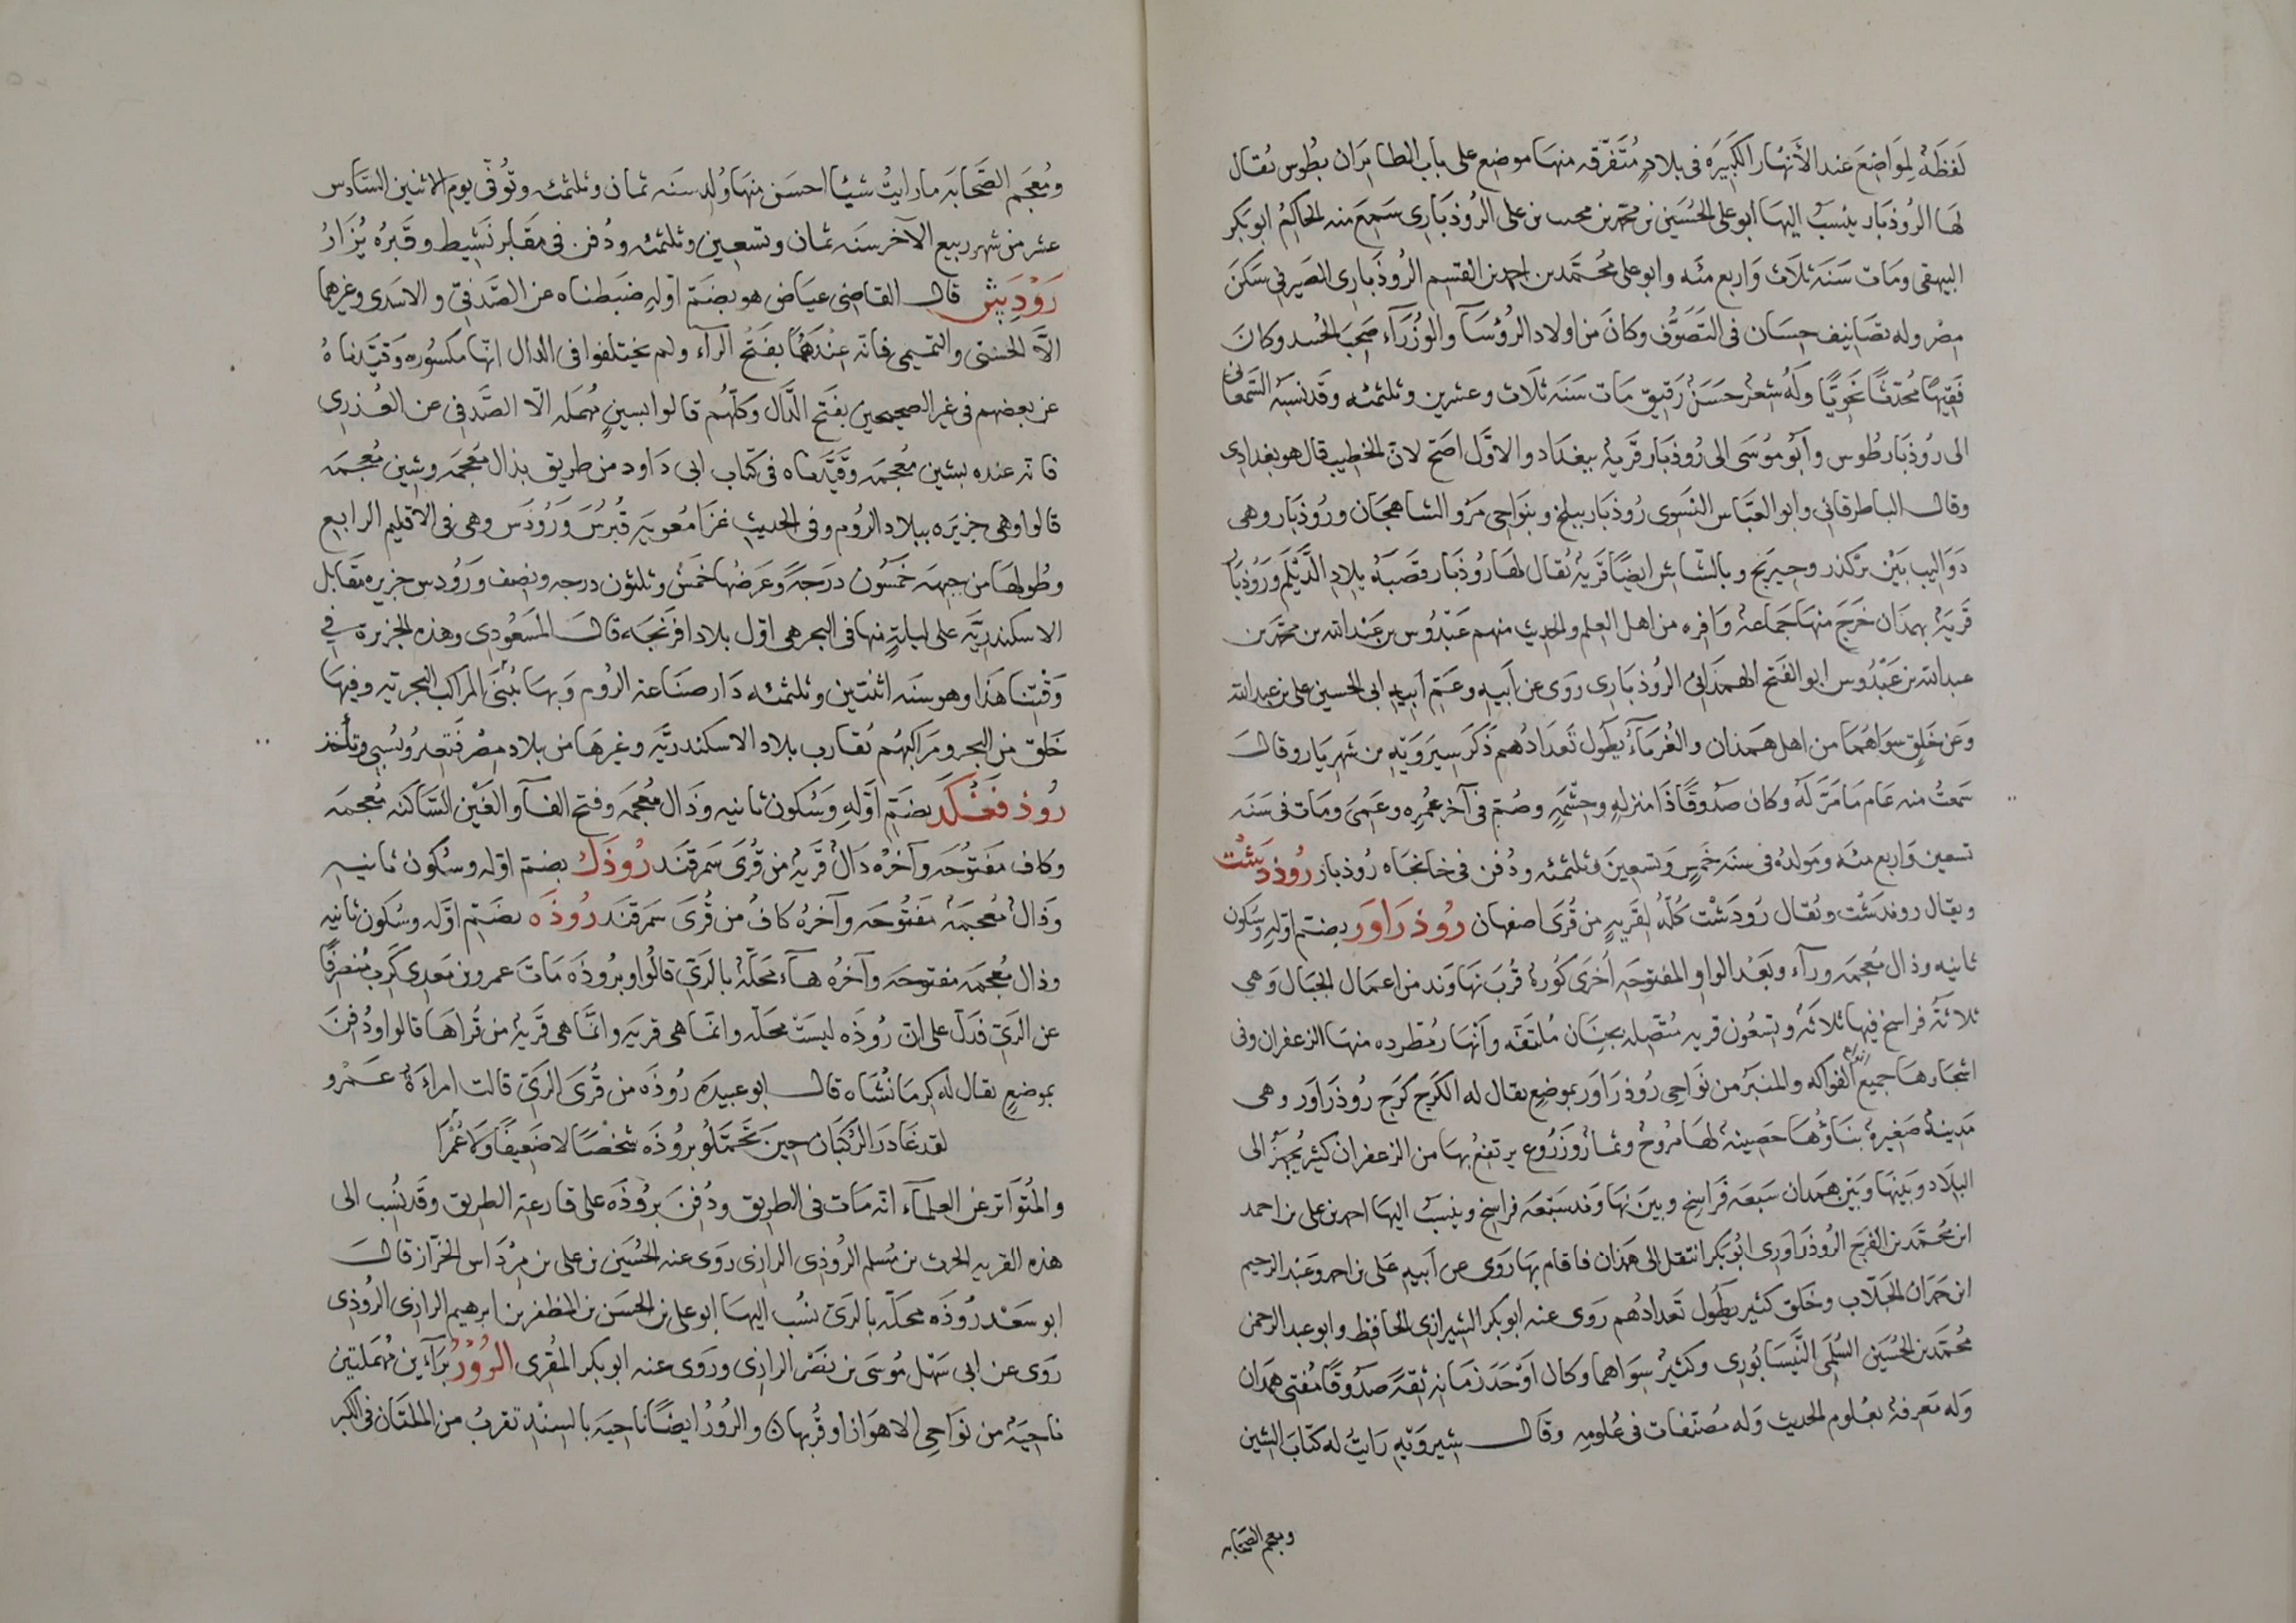 لَفظَة لِمَوَاضِعَ عند الأَنهَار الكَبيرَه فى بلادٍ مُتَفَرّقه منهَا موضع على باب الطابَران بطُوس يُقال
لهَا الرُوذبَار ينسَبُ اليهَا ابو على الحُسَين بن محمّد بن محمد بن على الرُوذبَارى سَمِعَ منه الحَاكِمُ ابو بكر
البيهقى ومَات سَنَة ثلَاث وَاربع مئَه وابو على مُحَمَّد بن احمد بن القسم الرُوذَبَارى الصَيرفِى سَكَنَ
مِصْر وله تصَانِيف حِسَان فى التَصَوُّف وكانَ من اولاد الرُؤسَآ والوُزَرَآء صَحِبَ الجُنيد وكانَ
فَقِيهًا مُحَدّثًا نَحَوِيًّا وَلَهُ شعْر حَسَنٌ رَقيق مَات سَنَة ثلَاث وعشرين وثلثمئه وَقَد نَسَبَهُ السَّمعَانى
الى رُوذبَار طُوس وَأبُو مُوسَى الى رُوذبَار قَريةٌ ببغدَاد والاوّل اصَحّ لانّ الخطيب قال هو بغدادى
وقال الباطرقانى وابو العبَّاس النسَوى رُوذبَار ببلخ وبنَوَاحِى مَرْو الشاهجَان ورُوذبَار وهى
دَوَاليب بَيْنَ بَركدز وجيرَنج وبالشَاش ايضًا قَريةٌ يُقال لهَا رُوذبَار وقصَبَةُ بلادِ الدَّيْلَم ورُوذبَار
قَريَةٌ بهمدَان خَرَجَ منهَا جمَاعَة وَافِره من اهل العِلم والحَديث منهم عَبْدُوس بن عَبْدالله بن محمّد بن
عبدالله بن عَبْدُوس ابو الفَتح الهمذَانىُ الرُوذبَارى رَوَى عن اَبيه وعَمّ اَبيهِ ابى الحسين على بن عبد الله
وعَن خلقٍ سوَاهُمَا من اهل همَذان والغُرَبَاءِ يطُول تَعدَادُهم ذَكرَ سيرَوَيهِ بن شَهرَيَار وقالَ
سَمعتُ منه عَام مَا مَرّ لَهُ وكان صَدُوقًا ذَا مَنزلهٍ وحِشْمَهٍ وصُمّ فى آخر عُمُره وعَمِىَ ومَات فى سَنَه
تسعين وَاربع مئَه ومَولدُه فى سنَه خَمسٍ وَتسعِينَ وثلثمئه ودُفن فى خانجَاه رُوذبار رُوذدَشْت
ويقال روندَشْت ويُقال رُودَشْت كُلّهُ لقريَهٍ من قُرَى اصفهان رُوذرَاوَر بضَمّ اوّلهِ وسُكون
ثانيه وذال مُعجَمَه ورآء وبَعْد الواو المفتوحَه اُخرَى كُورةٌ قُربَ نهَاوَند من اعمَال الجبَال وَهى
ثلاثَةُ فراسخ فيها ثلاثَةٌ وتسعُون قريه مُتّصله بجنَانٍ مُلتفّه وَاَنهَار مُطّرده منهَا الزعفران وفى
اشجَارهَا جميعُ الفواكه والمنبَرُ من نَوَاحِى رُوذرَاوَر بموضعٍ يقال له الكَرج كَرَج رُوذرَاوَر وهى
مَدِينةٌ صَغيرةٌ بنَاؤُهَا حصِينةٌ لهَا مُروجٌ وثمارٌ وَزُرُوع يرتفعُ بهَا من الزعفران كثير يُجَهّزُ الى
البلَاد وبَينهَا وبَيْن هَمَدان سَبعَه فَرَاسخ وبينَ نهَاوَند سَبعَه فراسِخ وينسَبُ اليهَا احمد بن على بن احمد
ابن مُحَمّد بن الفرَج الرُوذرَاوَرى ابُو بَكر انتقل الى همَذان فاقام بهَا رَوَى عن اَبيهِ عَلى بن احمد وعَبْد الرحيم
ابن حَمدَان الجَلّاب وخَلق كثير يطُول تَعدَادُهم رَوَى عنه ابو بكر الشيرازى الحافِظ وابو عبد الرحمن
مُحَمّد بن الحُسَين السُلَمى النَّيسَابُورى وكثيرٌ سِوَاهما وكَان اَوْحَدَ زمَانهِ ثقَةً صَدُوقًا مُفتى همَدان
وله مَعرفَةٌ بعُلوم الحديث وَله مُصَنّفات فى عُلومِه وقَال شيروَيهِ رَايتُ له كتاب السُنن
ومعجم الصحَابَه
ومُعجَم الصّحَابَة مَا رايتُ شيئا احسَن منهَا وُلد سَنَه ثمان وثلثمئه وتُوُفّى يوم الاثنين السَادس
عشر من شهر ربيع الآخر سنَه ثمان وتسعين وثلثمئه ودُفن فى مقابر نَشيط وقَبْرُه يُزَارُ
رَوْدِيش قال القاضى عيَاض هو بضَمّ اوّلهِ ضَبطناه عن الصَّدَفى والاسَدى وغيرهما
الّا الخشنى والتميمى فانّه عِنْدَهُمَا بفَتْحُ الرآء ولم يختلفوا فى الدال انّها مَكسُوره وَقيّدناهُ
عن بعضهم فى غير الصحيحين بفَتح الدّال وكلّهم قالوا بسينٍ مُهمَله الّا الصَّدَفى عن العُذرى
فانّه عنده بشين مُعجَمَه وقَيَّدنَاه فى كتاب ابى دَاود من طريق بذال مُعجَمَه وشِين مُعجمَه
قالوا وهى جزيرَه ببلاد الرُوم وفى الحديث غزَا مُعويَة قُبرُسَ وَرُوذَس وهى فى الاقليم الرابع
وطُولهَا من جِهَه خَمسُون درَجَةً وعَرضُهَا خَمسٌ وثلثون درجه ونِصف ورُودس جزيره تقابل
الاسكندريَّه على ليلةٍ منها فى البحر هى اوّل بلاد افرَنجَه قالَ المسَعُودى وهذه الجزيرة فى
وَقتِنا هَذا وهو سنَه اثنتين وثلثمئه دَار صنَاعة الرُوم وَبهَا تُبنَى المراكب البَحريّه وفيهَا
خَلق من البحر ومرَاكبهُم تُقارب بلاد الاسكندريَّه وغيرهَا من بلادِ مِصْر فتُغيرُ وتُسبى وتأخُذ
رُوذفَغْكَد بضَمّ اَوّلِهِ وَسُكون ثانيه وذَال مُعجمَه وفتح الفَآ والغَيْن السَاكنَه مُعجمَه
وكاف مَفتوحَه وآخرُه دَالٌ قريةٌ من قُرَى سَمَرقَند رُوذَك بضَم اوّله وسُكون ثانيه
وَذالٌ مُعجَمَةٌ مَفتُوحَه وآخرُهُ كافٌ من قُرَى سَمرقَند رُوذَه بضَمّ اَوّله وسُكون ثانيه
وذال مُعجمَه مفتوحَه وآخرُه هَآء محَلّةٌ بالرَىّ قالوا وبرُوذَه مَاتَ عمرو بن مَعدى كَرِب مُنصرفًا
عن الرَىّ فدَلّ على انّ رُوذَه ليسَتْ محَلّه وانّمَا هى قريَه وانّمَا هى قَريةٌ من قُراهَا قالوا ودُفنَ
بموضعٍ يقال له كِرمَانشَاه قال ابو عبيده رُوذَه من قُرَى الرَىّ قالت امرأةُ عَمْرو
لقد غَادَرَ الرُكبَانُ حِينَ تَحَمَّلُو برُوذَه شخْصًا لا ضَعِيفًا وَلَا غُمْرًا
والمُتوَاتر عن العلمَآء انّه مَات فى الطريق ودُفنَ برُوذَه على قارعَة الطريق وقَد نُسِب الى
هذه القريه الحرث بن مُسلم الرُوذى الرازى رَوَى عنه الحُسَين بن على بن مِرْدَاس الخرّاز قالَ
ابو سَعْد رُوذَه محَلّه بالرَىّ نسُب اليهَا ابو على بن الحسَن بن المظفر بن ابرهيم الرازى الرُوذى
رَوَى عن ابى سَهْل مُوسَى بن نصْر الرازى ورَوى عنه ابو بكر المقرى الرُوْرُ برَآءَين مُهمَلتين
ناحِيَةٌ من نَوَاحِى الاهوَاز او قُربهَا والرُورُ ايضًا ناحيَه بالسِنْدِ تقربُ من المُلتَان فى الكِبَر